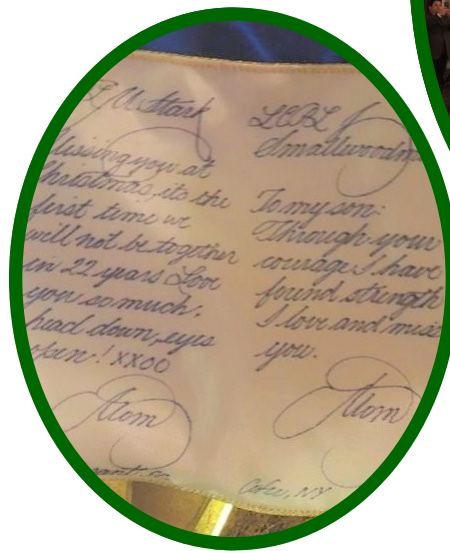 Stark
Missing you at
Christmas, its the
first time we
will not be together
in 22 years Love
you so much,
head down, eyes
open! xxoo
Mom
LCPL
Smallwood
To my son:
Through your
courage I have
found strength
I love and miss
you.
Mom
NY